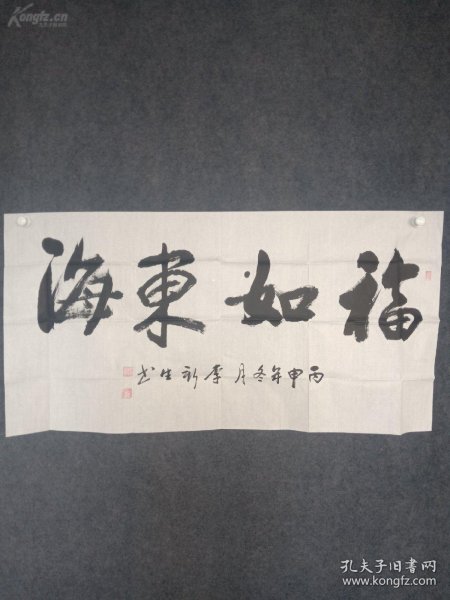 Kongfz.com
福如東海
丙申年冬月李新生书
孔夫子旧书网
www.kongfz.com